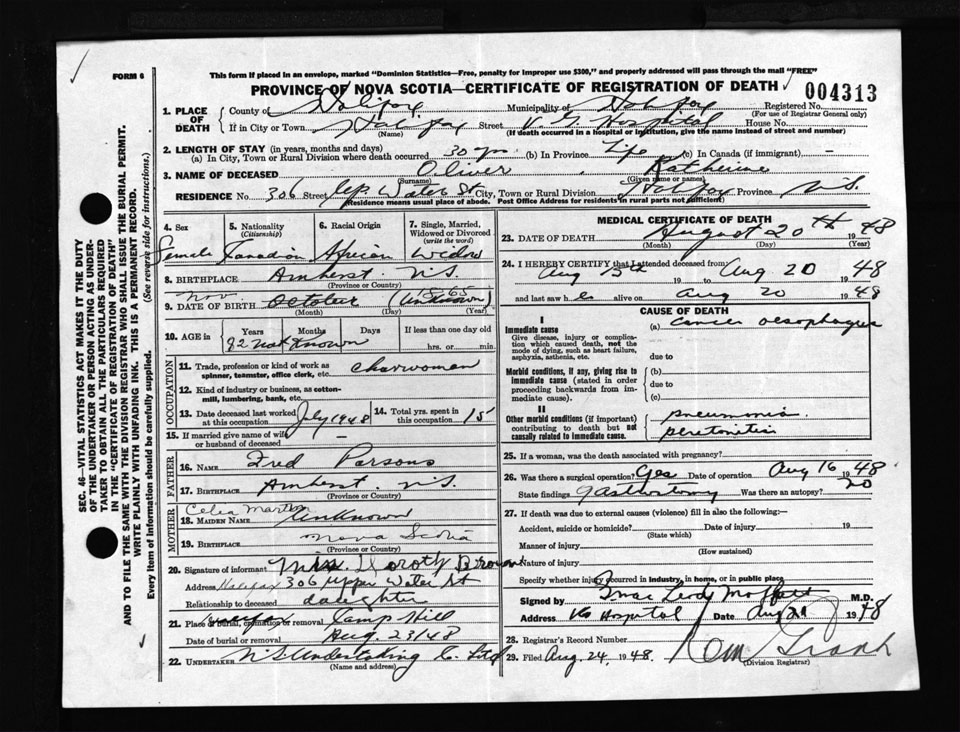 FORM 6
This form if placed in an envelope, marked "Dominion Statistics—Free, penalty for improper use $300," and properly addressed will pass through the mail "FREE"
PROVINCE OF NOVA SCOTIA—CERTIFICATE OF REGISTRATION OF DEATH
004313
1. PLACE OF DEATH
County of Halifax Municipality of Halifax Registered No.
(For use of Registrar General only)
If in City or Town Halifax Street V. G. Hospital House No.
(Name) (If death occurred in a hospital or institution, give the name instead of street and number)
2. LENGTH OF STAY (in years, months and days)
(a) In City, Town or Rural Division where death occurred 30 yrs (b) in Province Life (c) In Canada (if immigrant) —
3. NAME OF DECEASED Oliver, Katherine
(Surname) (Given name or names)
RESIDENCE No. 306 Street Up. Water St City, Town or Rural Division Halifax Province N.S.
(Residence means usual place of abode. Post Office Address for residents in rural parts not sufficient)
4. Sex
Female
5. Nationality
(Citizenship)
Canadian
6. Racial Origin
African
7. Single, Married, Widowed or Divorced
(write the word)
Widow
8. BIRTHPLACE Amherst N.S.
(Province or Country)
9. DATE OF BIRTH Nov October 1865 (Unknown)
(Month) (Day) (Year)
10. AGE in
Years Months Days If less than one day old
82 not known hrs. or min.
OCCUPATION
11. Trade, profession or kind of work as spinner, teamster, office clerk, etc. Charwoman
12. Kind of industry or business, as cotton-mill, lumbering, bank, etc.
13. Date deceased last worked at this occupation July 1948
14. Total yrs. spent in this occupation 15
15. If married give name of wife or husband of deceased —
FATHER
16. NAME Fred Parsons
17. BIRTHPLACE Amherst N.S.
(Province or Country)
MOTHER
18. MAIDEN NAME Celia Martin Unknown
19. BIRTHPLACE Nova Scotia
(Province or Country)
20. Signature of informant Miss Doroty Brown
Address Halifax 306 Upper Water St
Relationship to deceased daughter
21. Place of burial, cremation or removal Halifax Camp Hill
Date of burial or removal Aug. 23/48
22. UNDERTAKER N.S. Undertaking Co. Ltd
(Name and address)
MEDICAL CERTIFICATE OF DEATH
23. DATE OF DEATH August 20th 1948
(Month) (Day) (Year)
24. I HEREBY CERTIFY that I attended deceased from:
Aug 13th 19 to Aug 20 1948
and last saw her alive on Aug 20 1948
CAUSE OF DEATH
I
Immediate cause
Give disease, injury or complication which caused death, not the mode of dying, such as heart failure, asphyxia, asthenia, etc.
(a) cancer oesophagus
due to
Morbid conditions, if any, giving rise to immediate cause (stated in order proceeding backwards from immediate cause).
(b)
due to
(c)
II
Other morbid conditions (if important) contributing to death but not causally related to immediate cause.
pneumonia
peritonitis
25. If a woman, was the death associated with pregnancy?
26. Was there a surgical operation? Yes Date of operation Aug 16 1948
State findings gastrostomy Was there an autopsy? no
27. If death was due to external causes (violence) fill in also the following:—
Accident, suicide or homicide? Date of injury 19
(State which)
Manner of injury
(How sustained)
Nature of injury
Specify whether injury occurred in industry, in home, or in public place
Signed by Moffatt M.D.
Address VG Hospital Date Aug 21 1948
28. Registrar's Record Number
29. Filed Aug. 24, 1948.
(Division Registrar)
SEC. 46—VITAL STATISTICS ACT MAKES IT THE DUTY OF THE UNDERTAKER OR PERSON ACTING AS UNDERTAKER TO OBTAIN ALL THE PARTICULARS REQUIRED IN THE "CERTIFICATE OF REGISTRATION OF DEATH" AND TO FILE THE SAME WITH THE DIVISION REGISTRAR WHO SHALL ISSUE THE BURIAL PERMIT.
WRITE PLAINLY WITH UNFADING INK. THIS IS A PERMANENT RECORD.
Every item of Information should be carefully supplied. (See reverse side for instructions.)